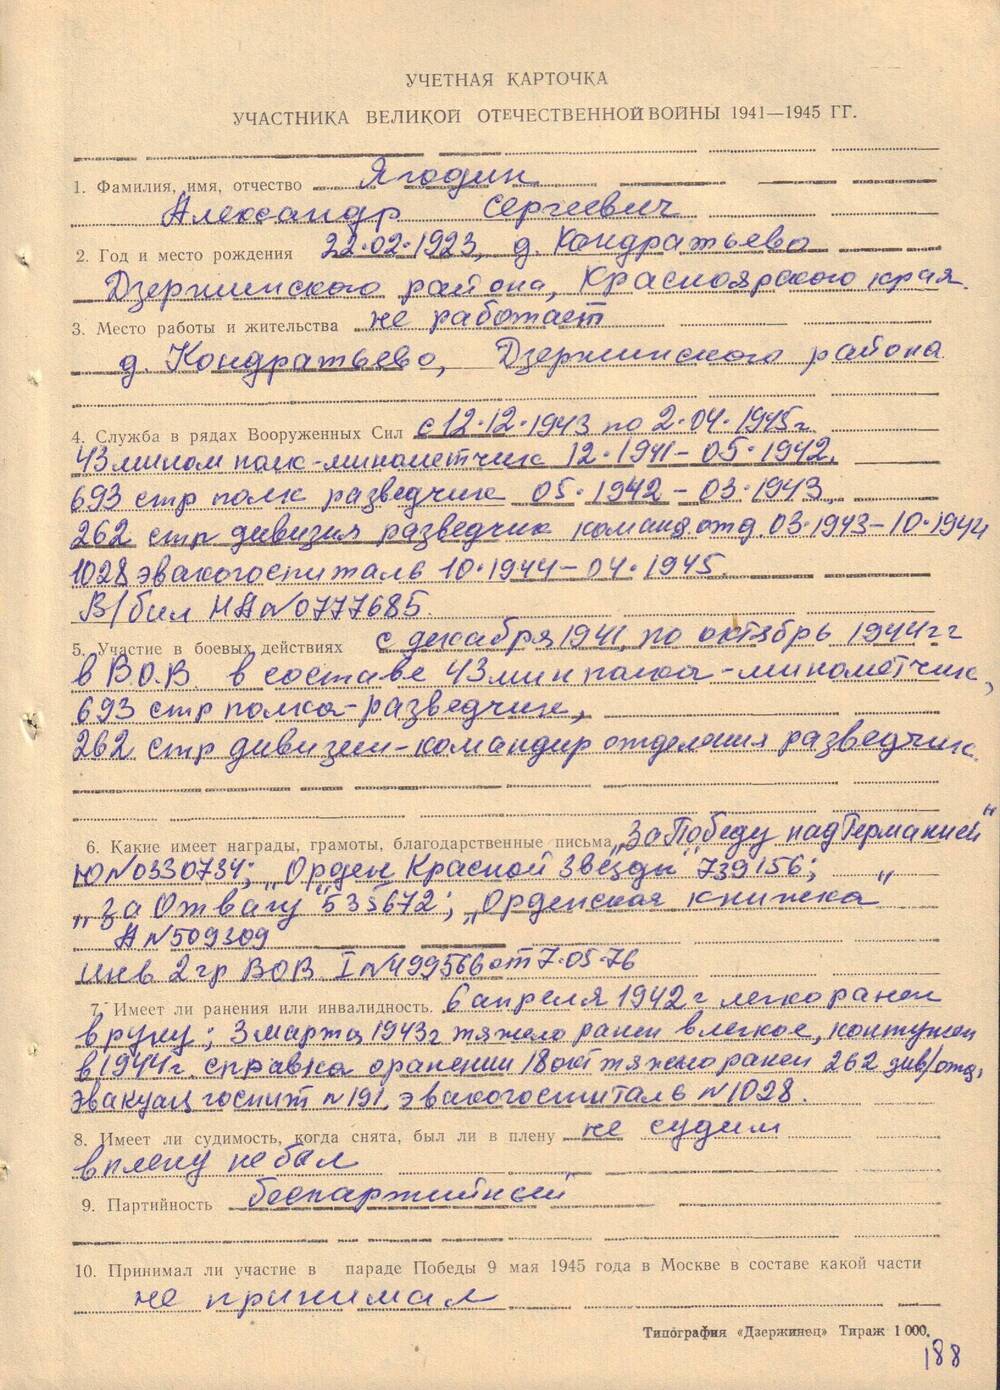 УЧЕТНАЯ КАРТОЧКА
УЧАСТНИКА ВЕЛИКОЙ ОТЕЧЕСТВЕННОЙ ВОЙНЫ 1941—1945 ГГ.
1. Фамилия, имя, отчество Ягодин
Александр Сергеевич
2. Год и место рождения 22.02.1923, д. Кондратьево
Дзержинского района, Красноярского края.
3. Место работы и жительства не работает
д. Кондратьево, Дзержинского района
4. Служба в рядах Вооруженных Сил с 12.12.1943 по 2.04.1945г
43 полк-минометчик 12.1941-05.1942,
693 стр полк разведчик 05.1942-03.1943,
262 стр дивизия разведчик команд.отд. 03.1943-10.1944
1028 эвакогоспиталь 10.1944-04.1945.
В/бил НА№0777685.
5. Участие в боевых действиях с декабря 1941, по октябрь 1944гг
в В.О.В. в составе 43 мин полка-минометчик,
693 стр полка-разведчик,
262 стр дивизии-командир отделения разведчик.
6. Какие имеет награды, грамоты, благодарственные письма „За Победу над Германией"
Ю№0330734; „Орден Красной Звезды" 739156;
„За Отвагу" 535672; „Орденская книжка"
А №509309
инв 2 гр ВОВ I №499566 от 7.05.76
7. Имеет ли ранения или инвалидность. 6 апреля 1942г легко ранен
в руку; 3 марта 1943г тяжело ранен в легкое, контужен
в 1944г. справка о ранении 18 окт тяжело ранен 262 див/отд,
эвакуац госпит №191, эвакогоспиталь №1028.
8. Имеет ли судимость, когда снята, был ли в плену не судим
в плену не был
9. Партийность беспартийный
10. Принимал ли участие в параде Победы 9 мая 1945 года в Москве в составе какой части
не принимал
Типография «Дзержинец» Тираж 1 000.
188